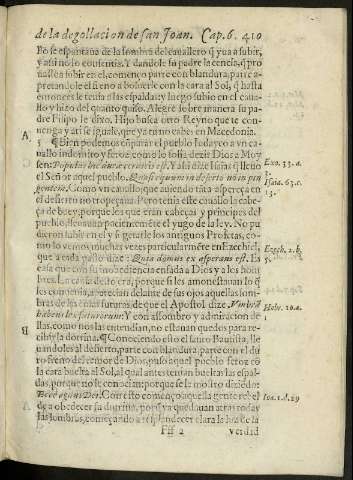 de la degollacion de san Joan. Cap. 6. 410
Po se espantaua de la sombra del cauallero q̃ yua a subir,
y assi no lo consentia. Y dandole su padre la cencia, q̃ pro
uasse a subir en el, començo parte con blandura, parte a
pretandole el freno a boluerle con la cara al Sol, q̃ hasta
entonces le tenia a las espaldas: y luego subio en el caua
llo y hizo del quanto quiso. Alegre sobre manera su pa
dre Filipo le dixo. Hijo busca otro Reyno que te con
uenga y a ti se iguale, que ya tu no cabes en Macedonia.
A
5 ¶ Bien podemos cõparar el pueblo Iudayco a vn ca
uallo indomito y feroz, como lo solia dezir Dios a Moy
sen: Populus
Exo. 33. a.
3.
el Señor aquel pueblo. Quasi equum in deserto non in pin
gentem. Como vn cauallo, que auiendo tãta aspereça en
Isaia. 63. c.
13.
el desierto no tropeçaua. Pero tenia este cauallo la cabe
ça de buey: porque los que eran cabeças y principes del
pueblo, lleuauan pacientemẽte el yugo de la ley. No pu
dieron subir en el y sujetarle los antiguos Profetas, co
mo lo vemos muchas vezes particularmẽte en Ezechiel,
que a cada passo dize: Quia domus exasperans est. Es
Ezech. 2. b.
5.
casa que con su inobediencia enfada a Dios y a los hom
bres. La causa desto era, porque si les amonestauan lo q̃
les conuenia, aparecian delante de sus ojos aquellas som
bras de las cosas futuras de que el Apostol dize. Vmbrã
habens lex futurorum: Y con assombro y admiracion de
Hebr. 10. a.
1
B
llas, como no las entendian, no estauan quedos para re
cebir la dotrina. ¶ Conociendo esto el santo Bautista, lle
uandoles al desierto, parte con blandura, parte con el du
ro freno del temor de Dios, puso aquel pueblo feroz cõ
la cara buelta al Sol, al qual antes tenian bueltas las espal
das, porque no le conocian: porque se le mostro diziẽdo:
Ecce agnus Dei. Con esto començo aquella gente rebel
Ioa. 1. d. 29
de a obedecer su dotrina, porq̃ ya quedauan atras todas
las sombras, començando a resplandecer clara la luz de la
Fff 2 verdad